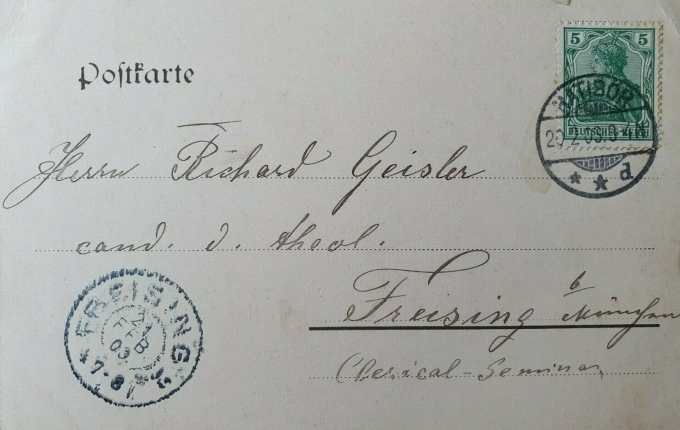 Postkarte
5 5
DEUTSCHES REICH
RATIBOR
d
Herrn Richard Geisler
cand. d. theol.
Freising b München
Clerical-Seminar
FREISING
21
FEB
03
7-8